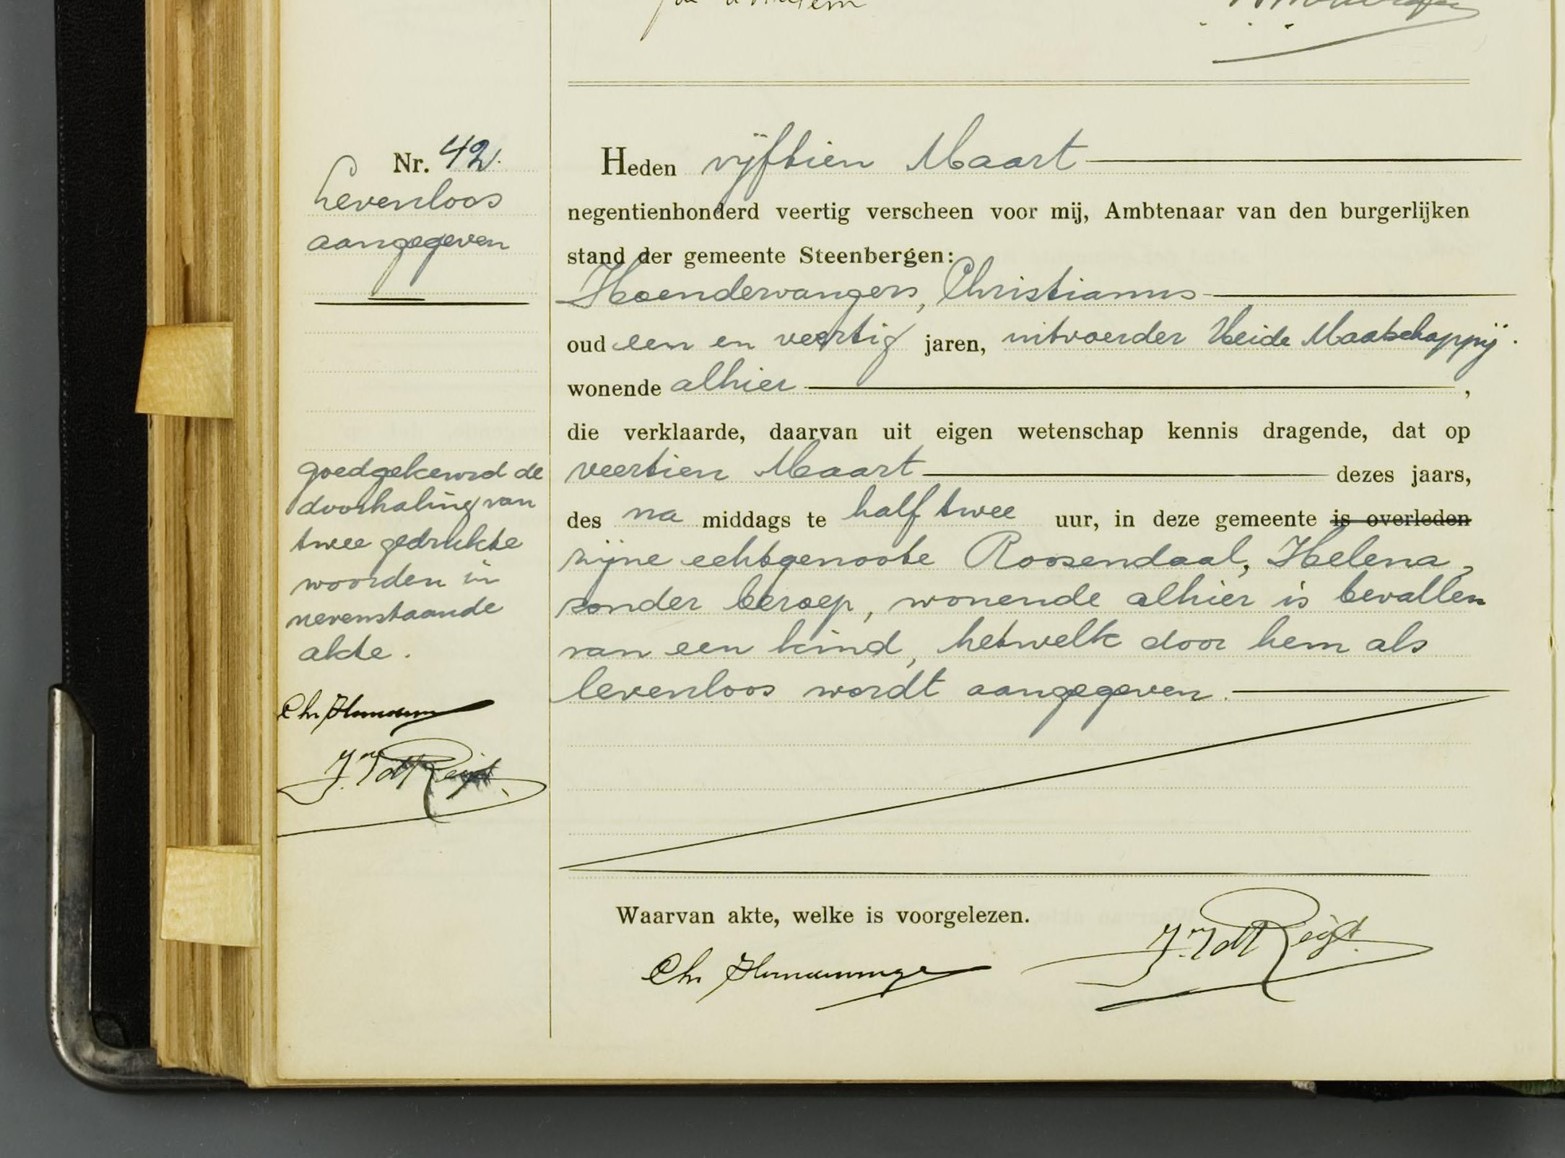 Nr. 42.
Levenloos
aangegeven
Heden vijftien Maart
negentienhonderd veertig verscheen voor mij, Ambtenaar van den burgerlijken
stand der gemeente Steenbergen:
Hoendervangers, Christianus
oud een en veertig jaren, uitvoerder Heide Maatschappij.
wonende alhier,
die verklaarde, daarvan uit eigen wetenschap kennis dragende, dat op
veertien Maart dezes jaars,
des na middags te half twee uur, in deze gemeente is overleden
zijne echtgenoote Roosendaal, Helena,
zonder beroep, wonende alhier is bevallen
van een kind, hetwelk door hem als
levenloos wordt aangegeven.
goedgekeurd de
doorhaling van
twee gedrukte
woorden in
nevenstaande
akte.
Chr
Waarvan akte, welke is voorgelezen.
Chr